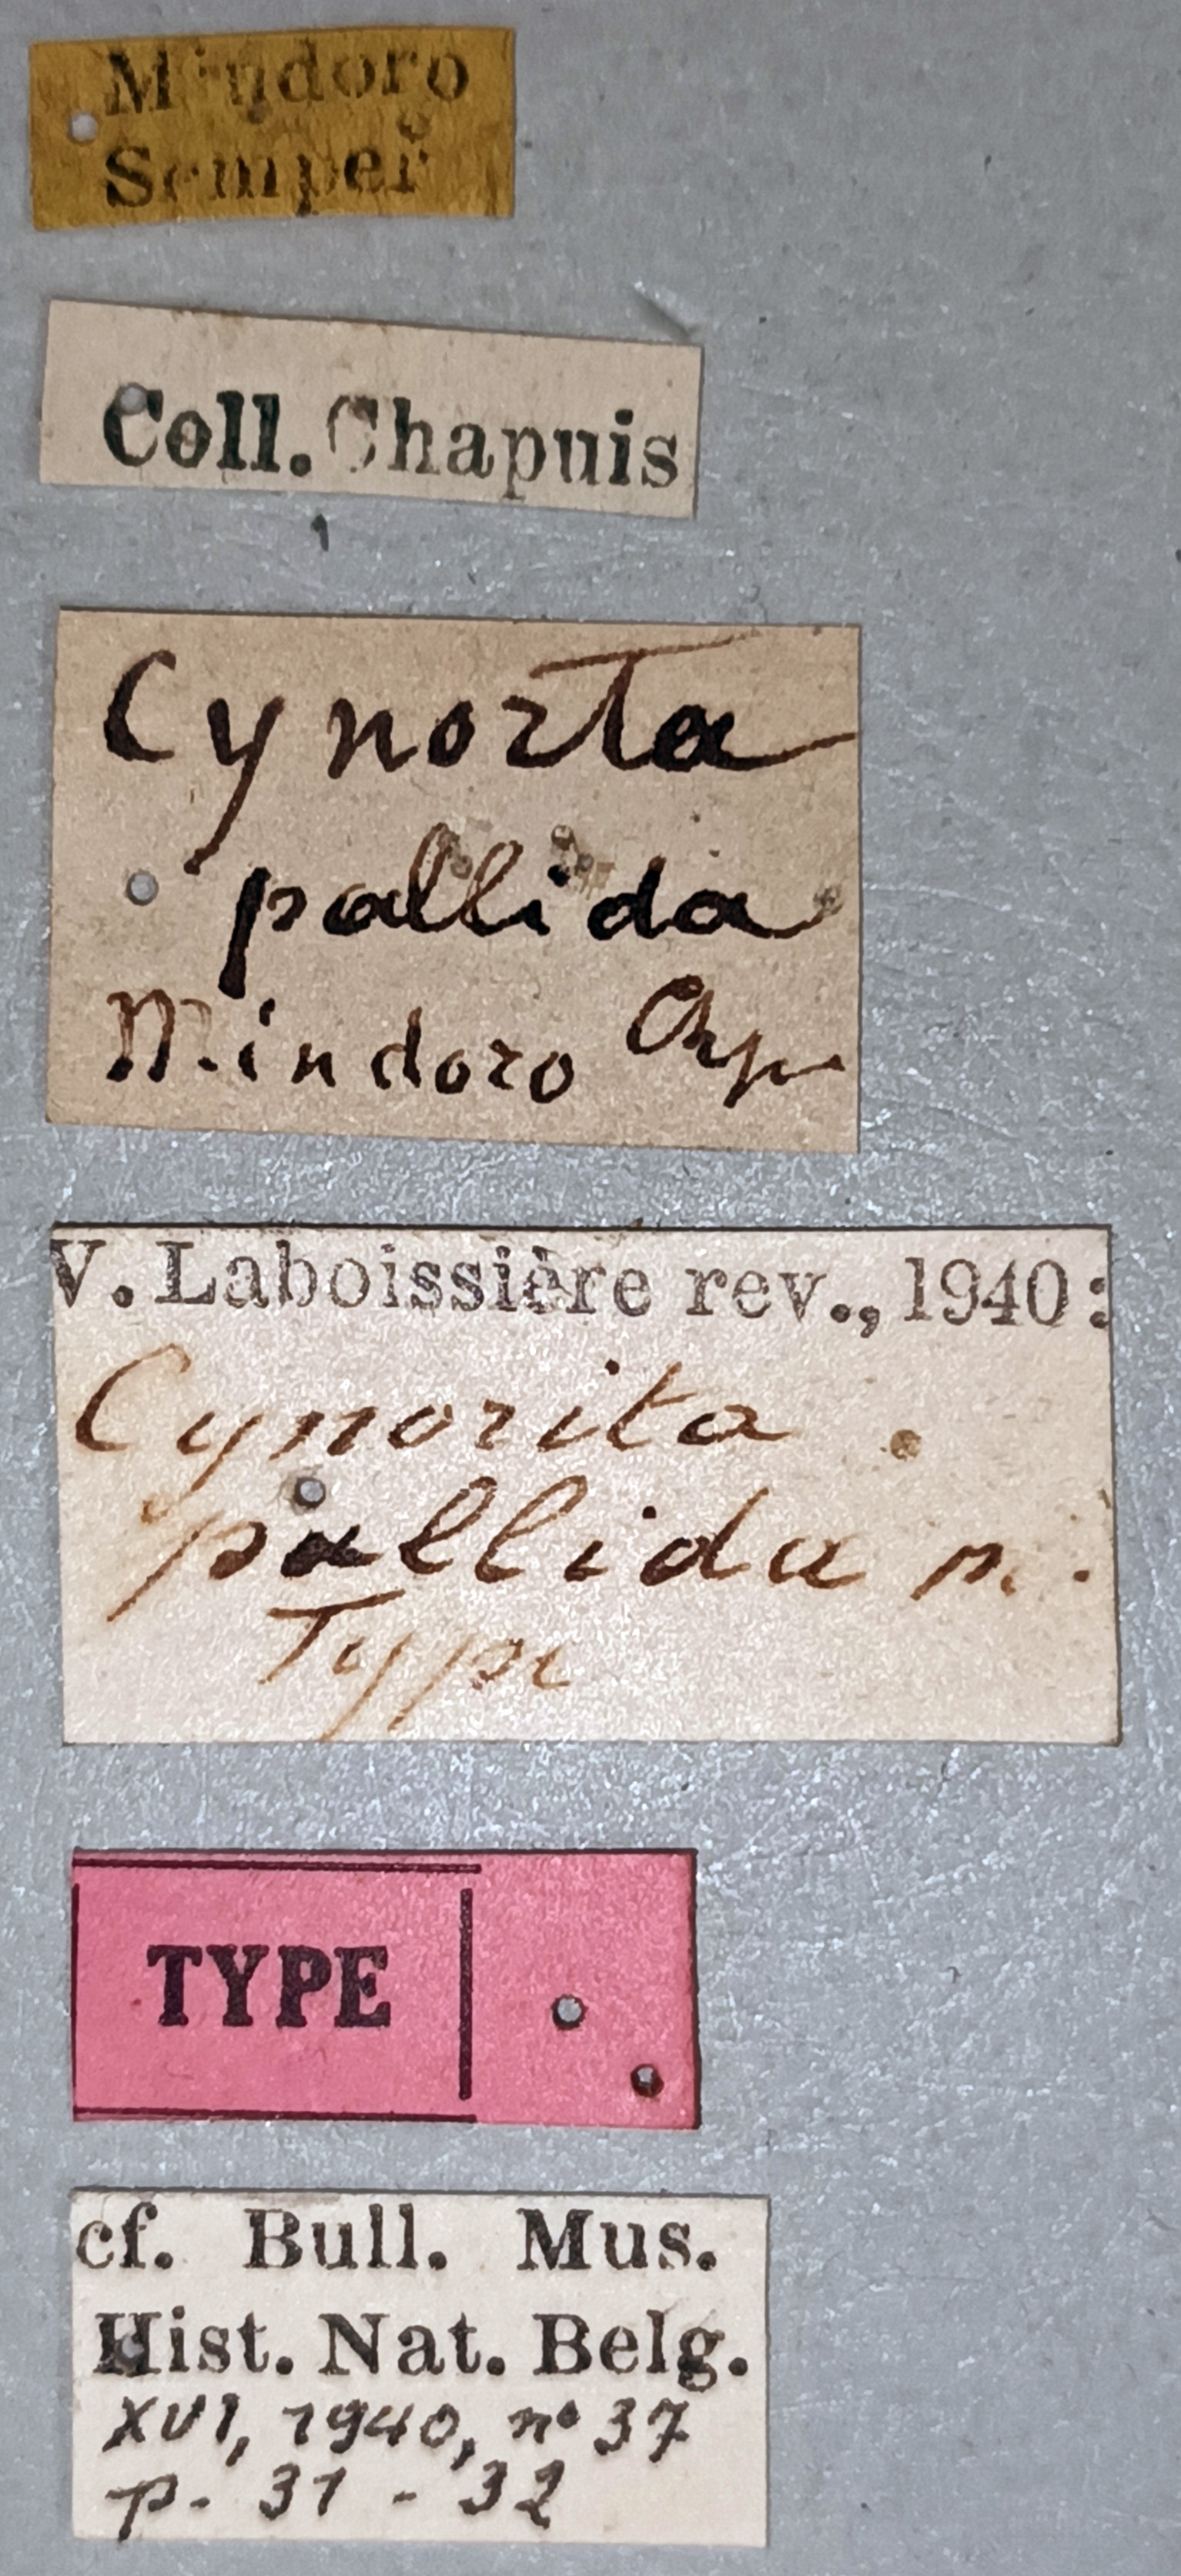 Mindoro
Semper
Coll. Chapuis
Cynorta
pallida
Mindoro Chp
V. Laboissière rev., 1940:
Cynorita
pallida n.
Type
TYPE
cf. Bull. Mus.
Hist. Nat. Belg.
XVI, 1940, n° 37
p. 31 - 32